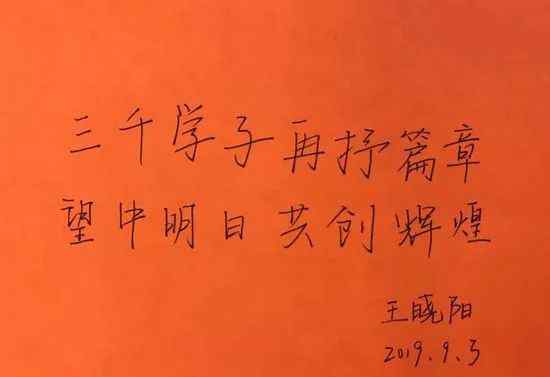 三千学子再抒篇章
望中明日共创辉煌
王晓阳
2019.9.5